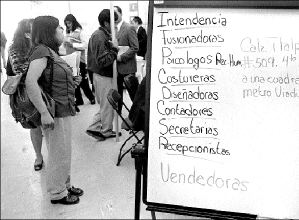 Intendencia
Fusionadoras
Psicologos Rec Hum.
Costureras
Diseñadoras
Contadores
Secretarias
Recepcionistas
Vendedoras
Calz.
#509.
a una cuadra
metro